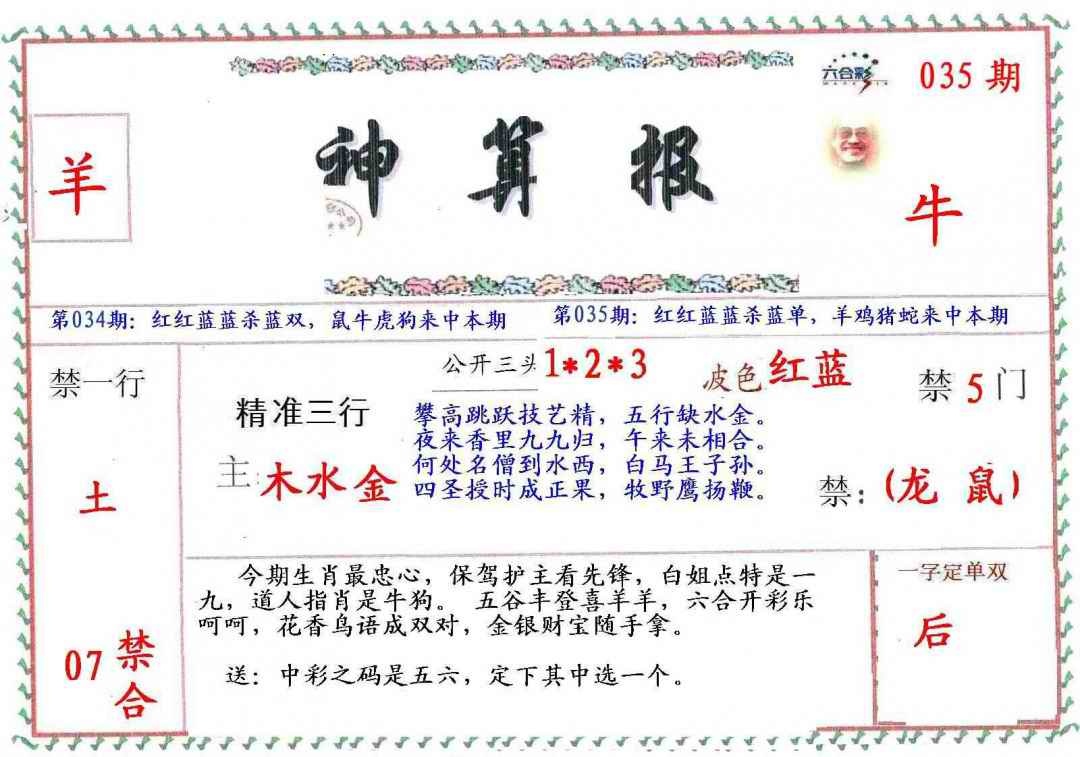 六合彩
035 期
羊
神算报
牛
第034期：红红蓝蓝杀蓝双，鼠牛虎狗来中本期
第035期：红红蓝蓝杀蓝单，羊鸡猪蛇来中本期
禁一行
土
07 禁合
公开三头 1*2*3
波色 红蓝
禁 5 门
精准三行
主：木水金
攀高跳跃技艺精，五行缺水金。
夜来香里九九归，午来未相合。
何处名僧到水西，白马王子孙。
四圣授时成正果，牧野鹰扬鞭。
禁：(龙 鼠)
今期生肖最忠心，保驾护主看先锋，白姐点特是一
九，道人指肖是牛狗。 五谷丰登喜羊羊，六合开彩乐
呵呵，花香鸟语成双对，金银财宝随手拿。
送：中彩之码是五六，定下其中选一个。
一字定单双
后